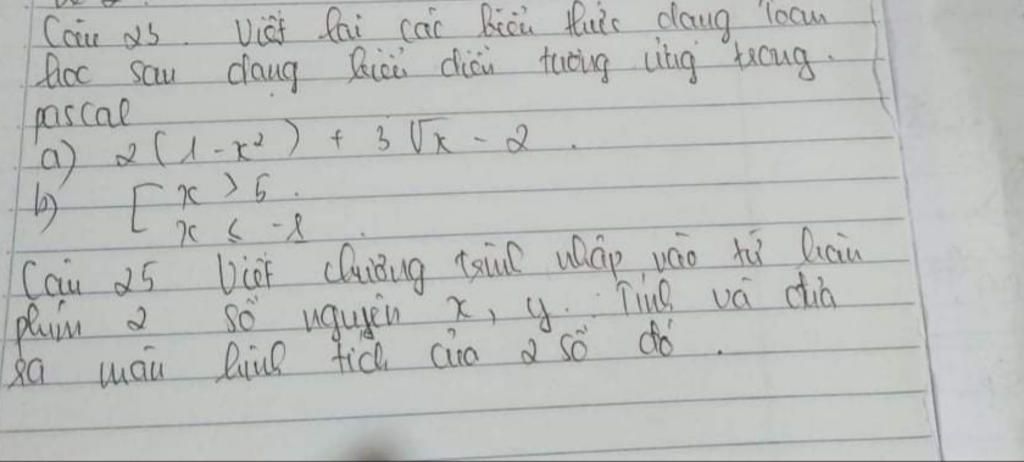 Câu 25. Viết lại các biểu thức dạng toán
học sau dạng biểu diễn tương ứng trong.
pascal
a) 2(1-x²) + 3√x - 2.
b) [ x > 5.
x ≤ -1.
Câu 25 Viết chương trình nhập vào từ bàn
phím 2 số nguyên x, y. Tính và đưa
ra màn hình tích của 2 số đó.